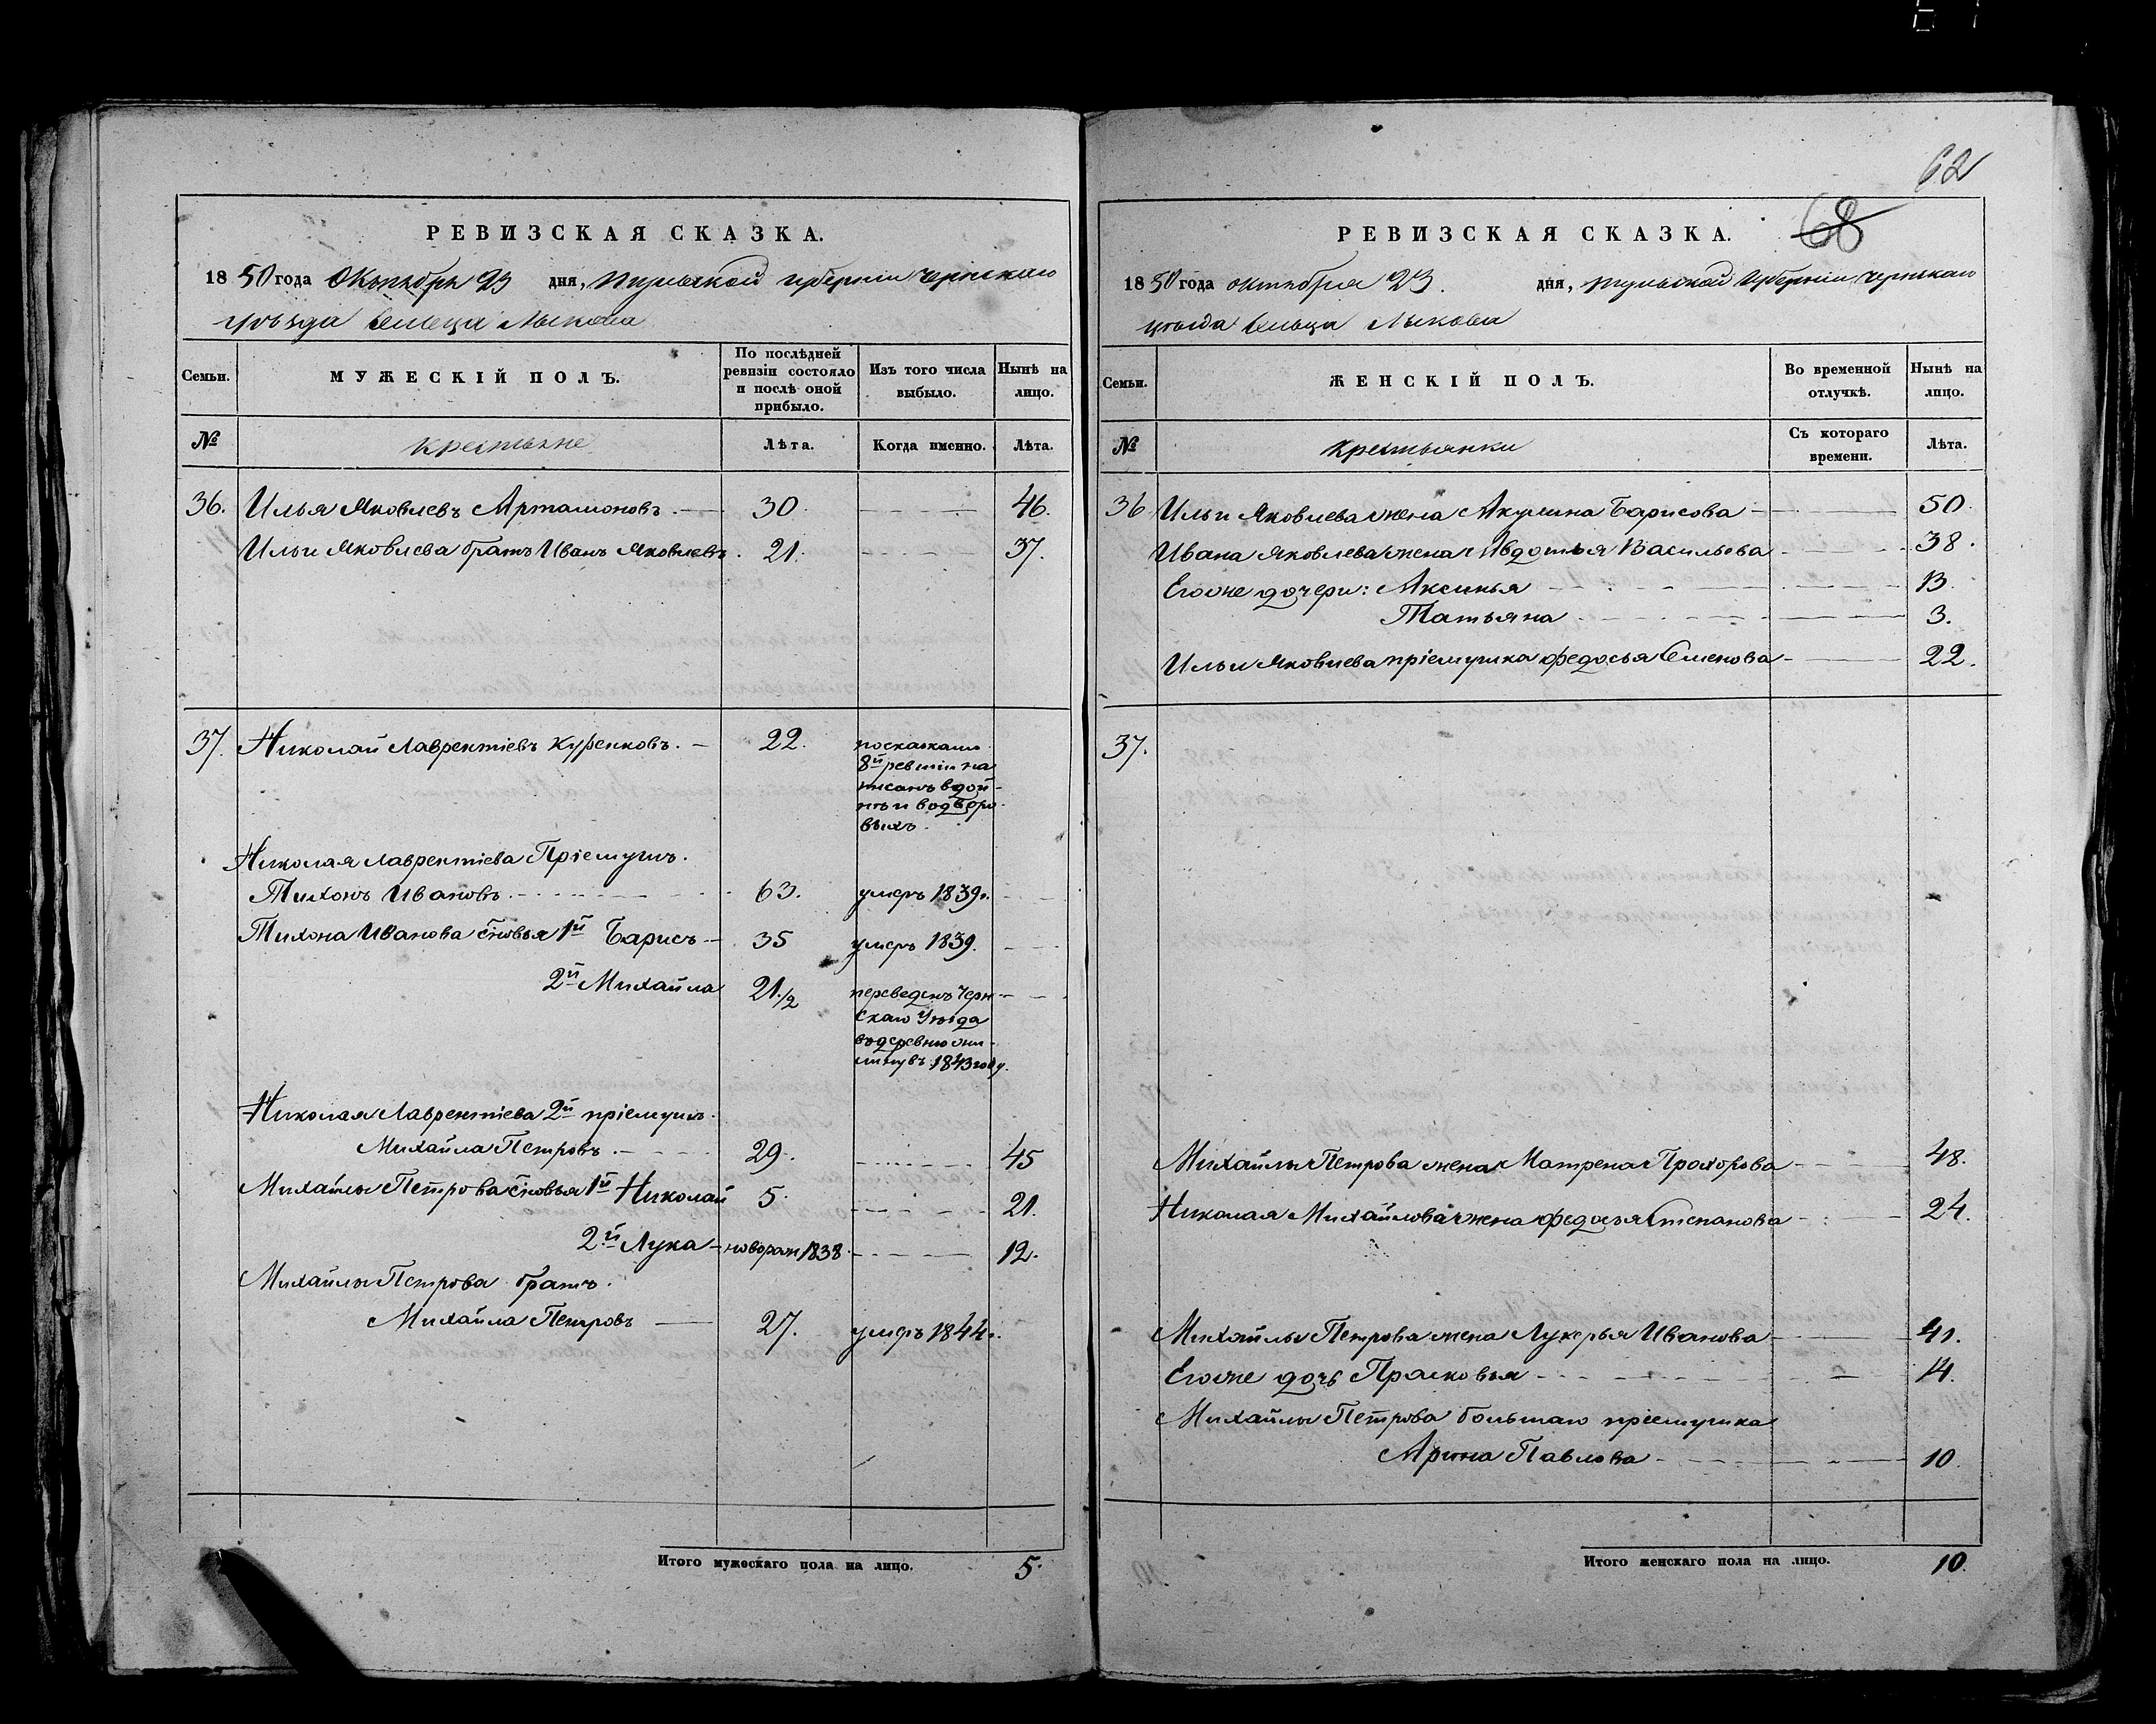 62
68
РЕВИЗСКАЯ СКАЗКА.
1850 года Октября 23 дня, Тульской губернии Чернскаго
уѣзда сельца Лыкова
Семьи.
МУЖЕСКІЙ ПОЛЪ.
По послѣдней ревизіи состояло и послѣ оной прибыло.
Изъ того числа выбыло.
Нынѣ на лицо.
№
крестьяне
Лѣта.
Когда именно.
Лѣта.
36. Илья Яковлевъ Артамоновъ. 30 46.
Ильи Яковлева братъ Иванъ Яковлевъ. 21. 37.
37. Николай Лаврентіевъ Куренковъ. 22.
по сказкамъ
8й ревизіи на
писанъ вдой-
нѣ и в дворо
выхъ.
Николая Лаврентіева Пріемышъ.
Тихонъ Ивановъ. 63. умеръ 1839г.
Тихона Иванова сновья 1й Барисъ 35 умеръ 1839.
2й Михайла 21 1/2 переведенъ Черн-
скаго Уѣзда
въ деревню
въ 1843 году.
Николая Лаврентіева 2й пріемышъ.
Михайла Петровъ. 29. 45
Михайлы Петрова сновья 1й Николай 5. 21.
2й Лука новорож 1838 12.
Михайлы Петрова братъ.
Михайла Петровъ 27. умеръ 1844г.
Итого мужескаго пола на лицо. 5.
РЕВИЗСКАЯ СКАЗКА.
1850 года октября 23. дня, Тульской губерніи Чернскаго
уѣзда сельца Лыкова
Семьи.
ЖЕНСКІЙ ПОЛЪ.
Во временной отлучкѣ.
Нынѣ на лицо.
№
крестьянки
Съ котораго времени.
Лѣта.
36 Ильи Яковлева жена Акулина Барисова 50.
Ивана Яковлева жена Авдотья Васильева 38.
Егоже дочери: Аксинья 13.
Татьяна 3.
Ильи Яковлева пріемушка Федосья Семенова 22.
37.
Михайлы Петрова жена Матрена Прохорова 48.
Николая Михайлова жена Федосья Степанова 24.
Михайлы Петрова жена Лукерья Иванова 41.
Егоже дочь Прасковья 14.
Михайлы Петрова большаго пріемушка
Арина Павлова 10.
Итого женскаго пола на лицо. 10.